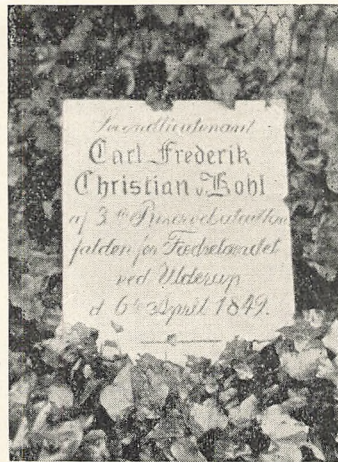 Secondlieutenant
Carl Frederik
Christian v. Kohl
af 3die Reservebataillon
falden for Fædrelandet
ved Ulderup
d 6te April 1849.